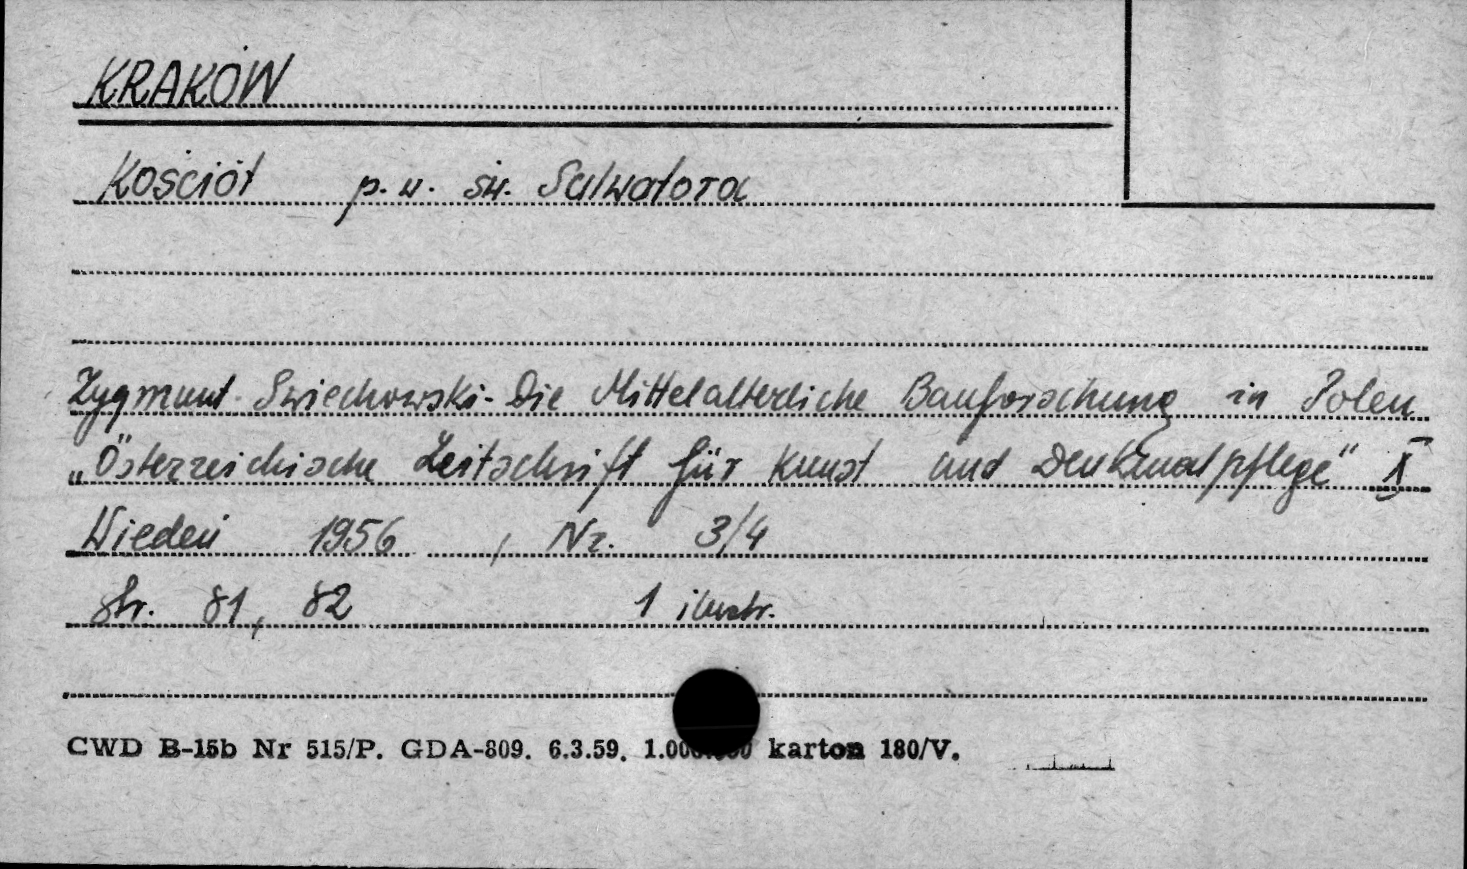 KRAKÓW
Kościół p. w. św. Salwatora
Zygmunt Swiechowski - Die Mittelalterliche Bauforschung in Polen
„Österreichische Zeitschrift für Kunst und Denkmalpflege" X
Wiedeń 1956, Nr. 3/4
str. 81, 82 1 ilustr.
CWD B-15b Nr 515/P. GDA-809. 6.3.59. karton 180/V.